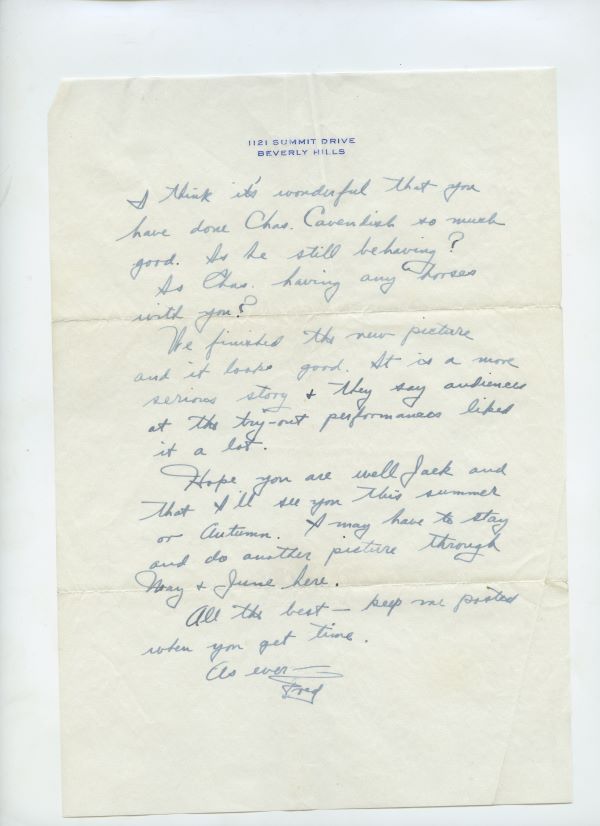 1121 SUMMIT DRIVE
BEVERLY HILLS
I think it's wonderful that you
have done Chas. Cavendish so much
good. Is he still behaving?
Is Chas. having any horses
with you?
We finished the new picture
and it looks good. It is a more
serious story & they say audiences
at the try-out performances liked
it a lot.
Hope you are well Jack and
that I'll see you this summer
or Autumn. I may have to stay
and do another picture through
May & June here.
All the best — keep me posted
when you get time.
As ever —
Fred